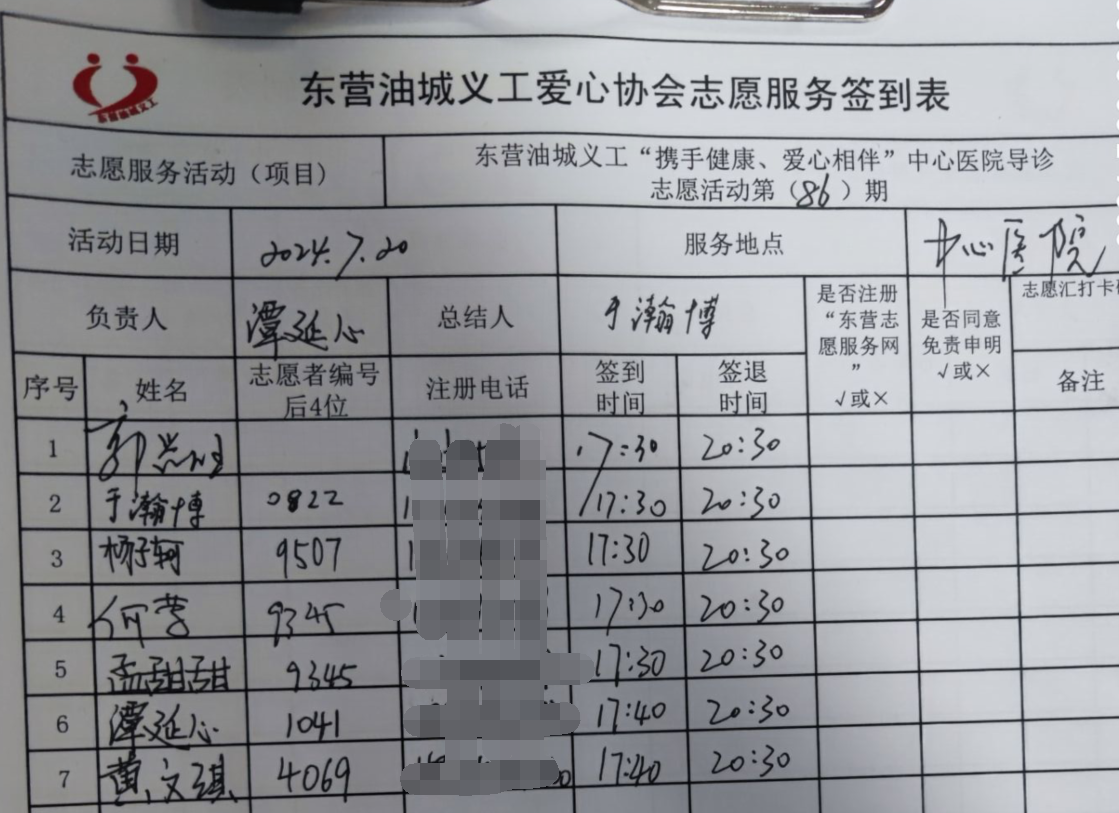 东营油城义工
东营油城义工爱心协会志愿服务签到表
志愿服务活动（项目）
东营油城义工“携手健康、爱心相伴”中心医院导诊
志愿活动第（86）期
活动日期 2024.7.20 服务地点 中心医院
负责人 潭延心 总结人 于瀚博
是否注册
“东营志
愿服务网
”
√或×
是否同意
免责申明
√或×
志愿汇打卡
备注
序号 姓名
志愿者编号
后4位
注册电话
签到
时间
签退
时间
1 郭 17:30 20:30
2 于瀚博 0822 17:30 20:30
3 杨子轲 9507 17:30 20:30
4 何营 9345 17:30 20:30
5 孟甜甜 9345 17:30 20:30
6 潭延心 1041 17:40 20:30
7 黄文琪 4069 17:40 20:30